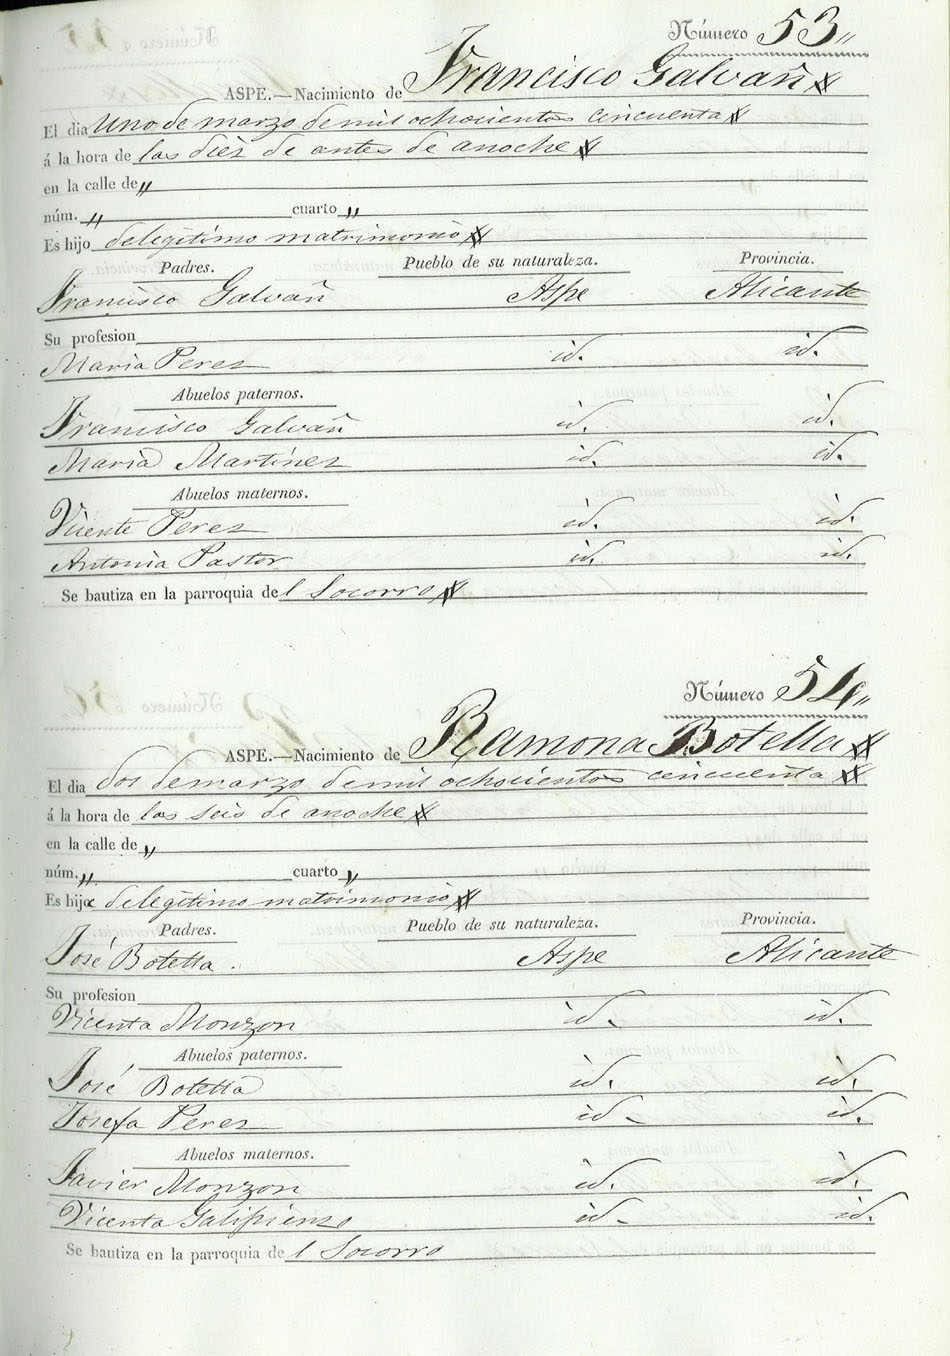 Número 53"
ASPE.—Nacimiento de Francisco Galvañ
El dia uno de marzo de mil ochocientos cincuenta
á la hora de las diez de antes de anoche
en la calle de "
núm. " cuarto "
Es hijo de legítimo matrimonio
Padres. Pueblo de su naturaleza. Provincia.
Francisco Galvañ Aspe Alicante
Su profesion
Maria Perez id. id.
Abuelos paternos.
Francisco Galvañ id. id.
Maria Martinez id. id.
Abuelos maternos.
Vicente Perez id. id.
Antonia Pastor id. id.
Se bautiza en la parroquia del Socorro
Número 54"
ASPE.—Nacimiento de Ramona Botella
El dia dos de marzo de mil ochocientos cincuenta
á la hora de las seis de anoche
en la calle de "
núm. " cuarto "
Es hija de legítimo matrimonio
Padres. Pueblo de su naturaleza. Provincia.
José Botella. Aspe Alicante
Su profesion
Vicenta Monzon id. id.
Abuelos paternos.
José Botella id. id.
Josefa Perez id. id.
Abuelos maternos.
Javier Monzon id. id.
Vicenta Galipienzo id. id.
Se bautiza en la parroquia del Socorro